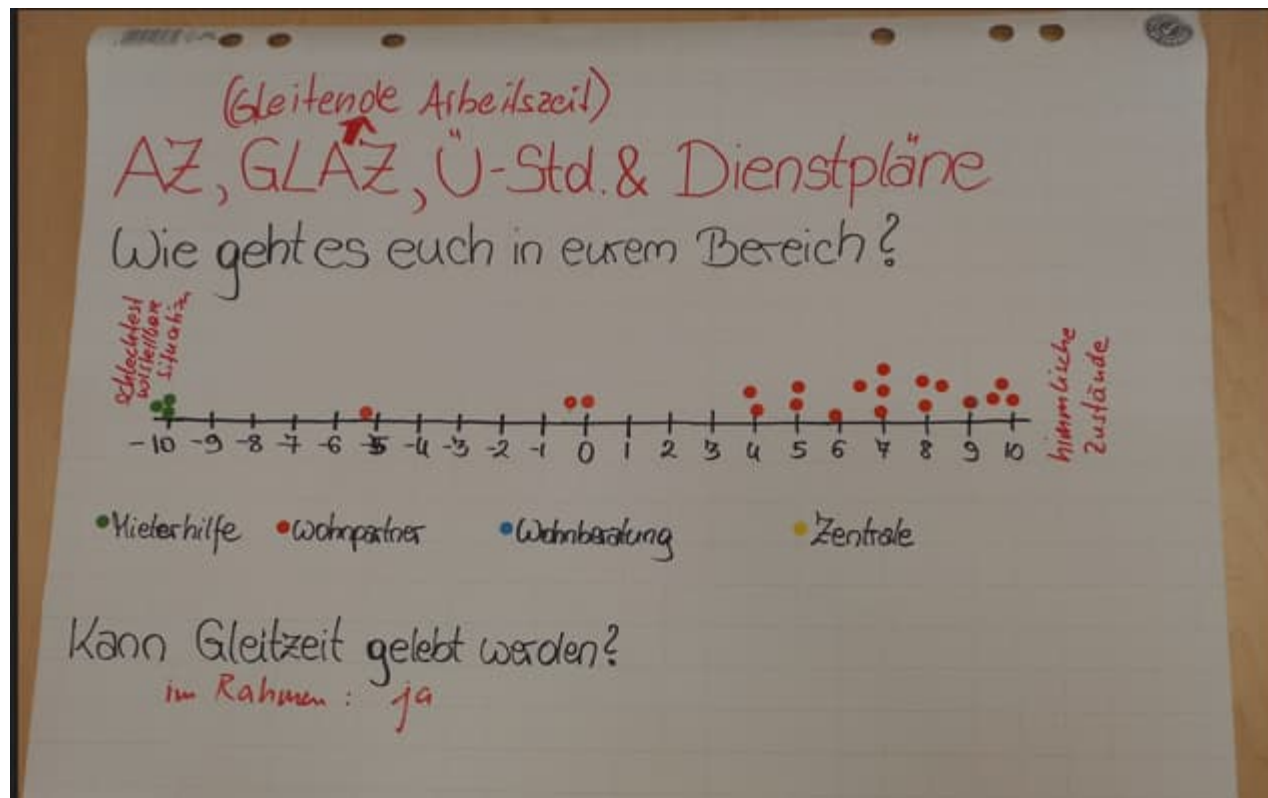 (Gleitende Arbeitszeit)
AZ, GLAZ, Ü-Std. & Dienstpläne
Wie geht es euch in eurem Bereich?
schlechtest
vorstellbare
situation
himmlische
Zustände
-10 -9 -8 -7 -6 -5 -4 -3 -2 -1 0 1 2 3 4 5 6 7 8 9 10
Mieterhilfe Wohnpartner Wohnberatung Zentrale
Kann Gleitzeit gelebt werden?
im Rahmen: ja